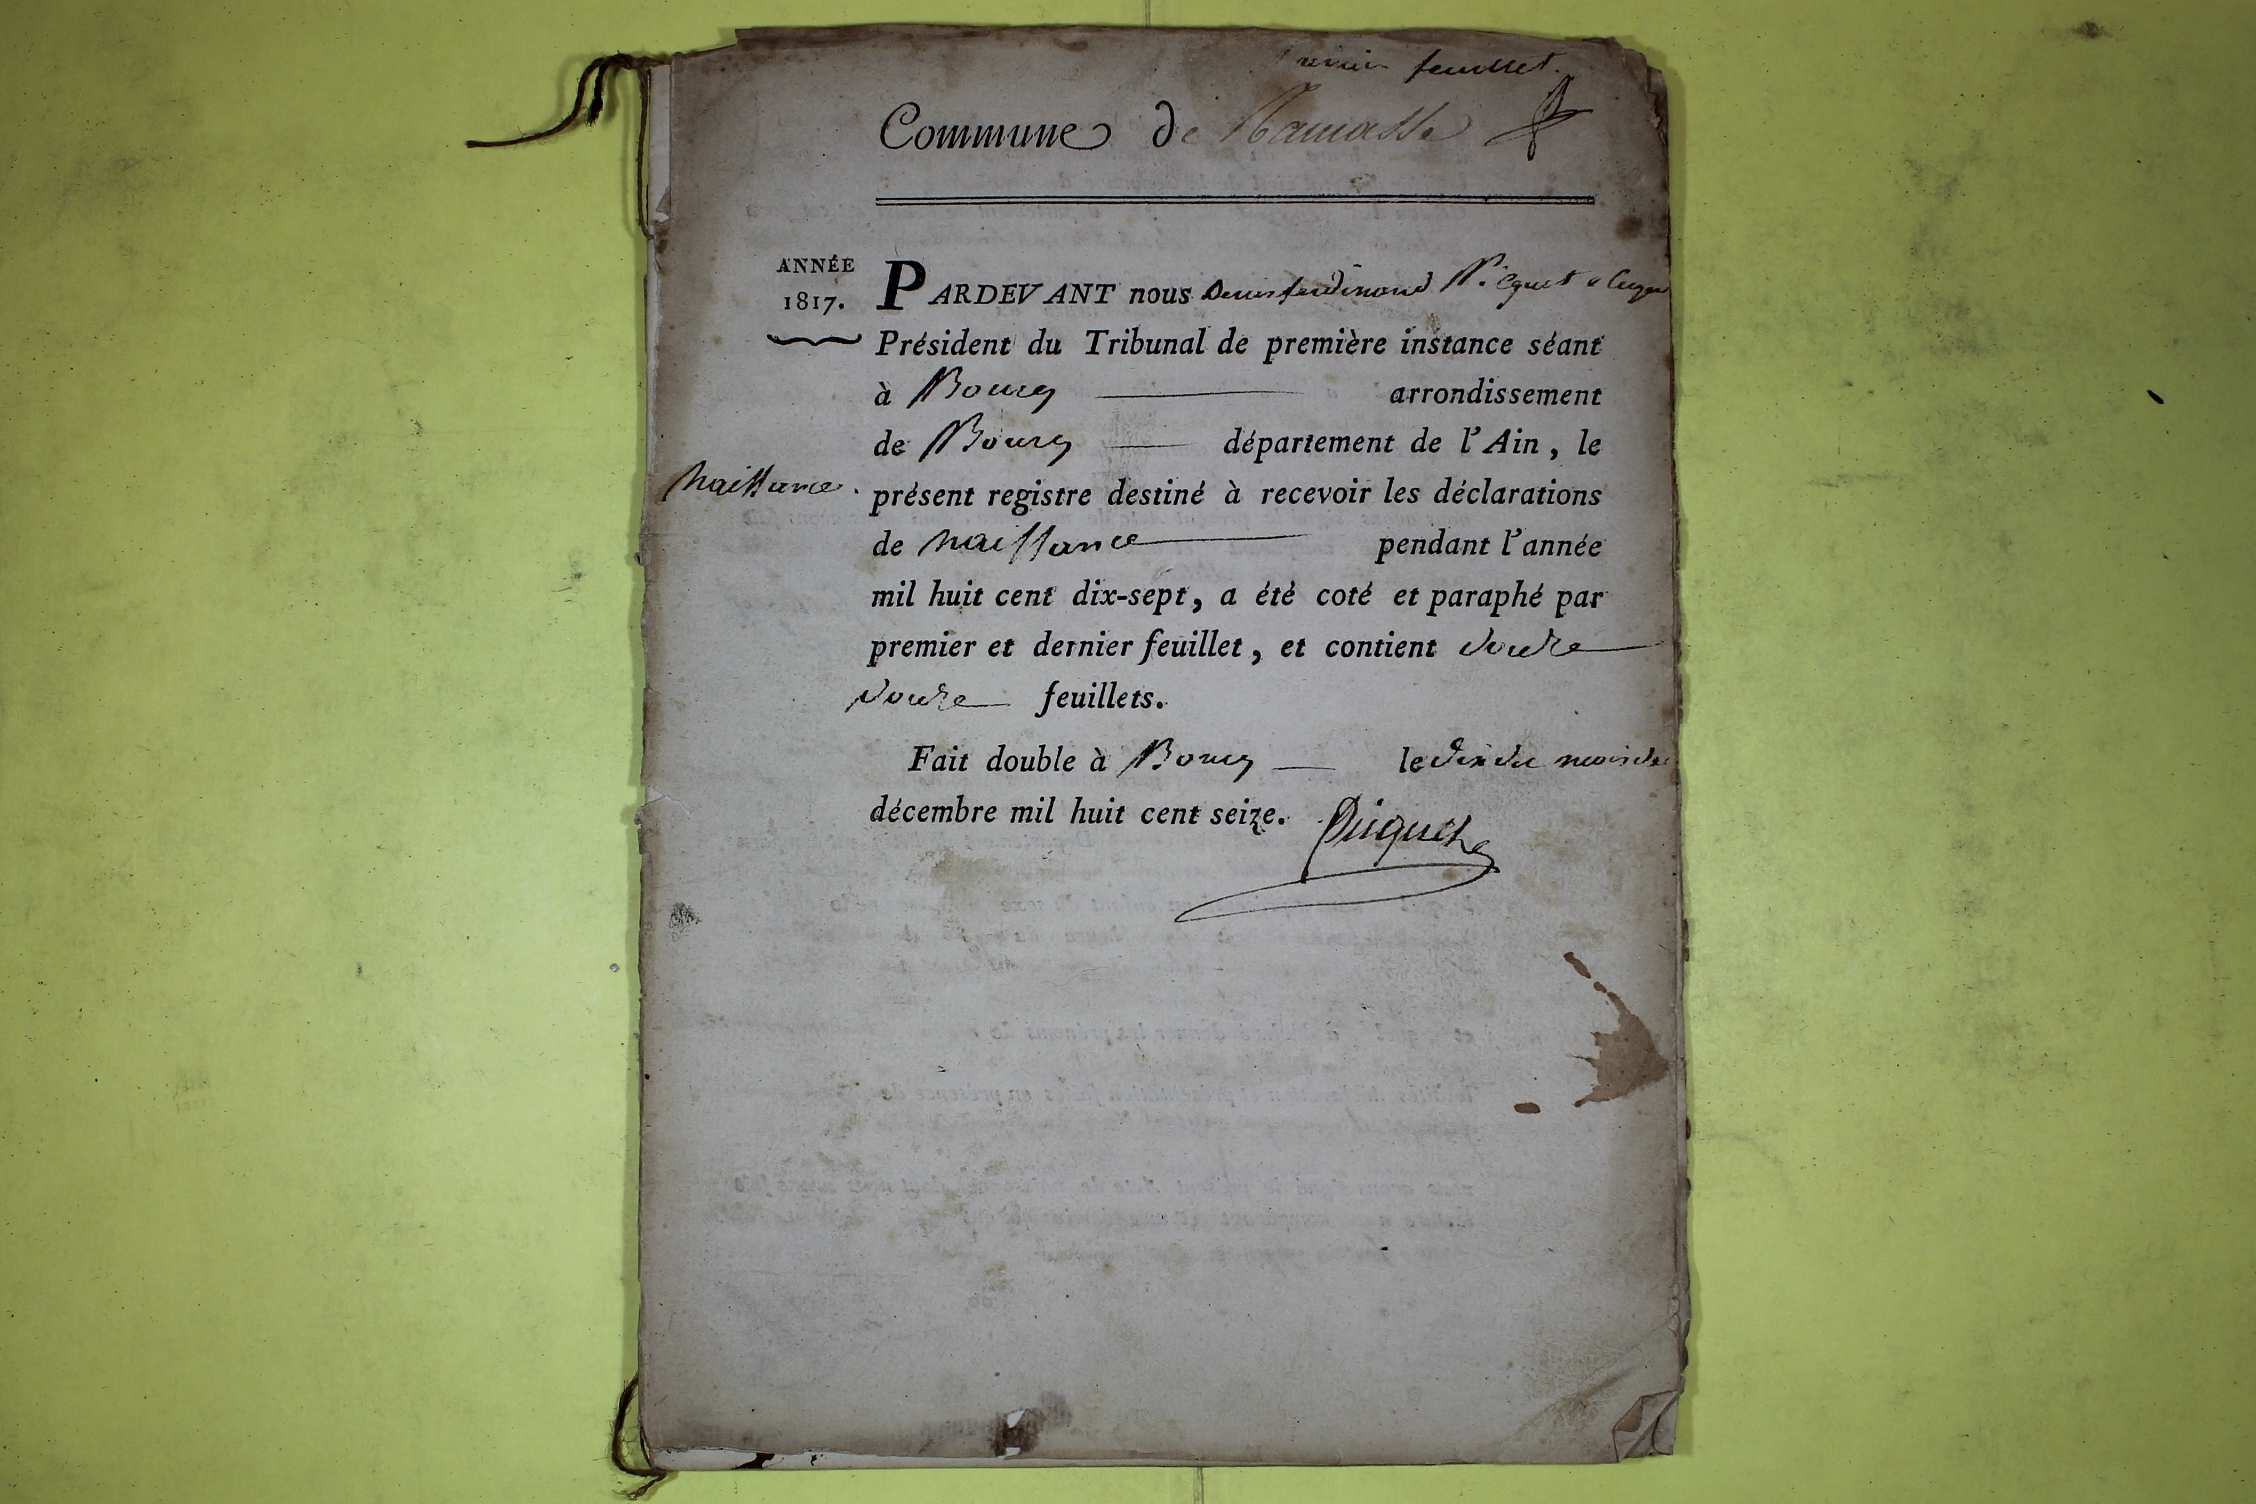 premier feuillet.
Commune de Ramasse
ANNÉE
1817.
PARDEVANT nous Denis ferdinand Piquet
Président du Tribunal de première instance séant
à Bourg arrondissement
de Bourg département de l'Ain, le
Naissance.
présent registre destiné à recevoir les déclarations
de naissance pendant l'année
mil huit cent dix-sept, a été coté et paraphé par
premier et dernier feuillet, et contient douze
douze feuillets.
Fait double à Bourg le dix du mois de
décembre mil huit cent seize.
Piquet